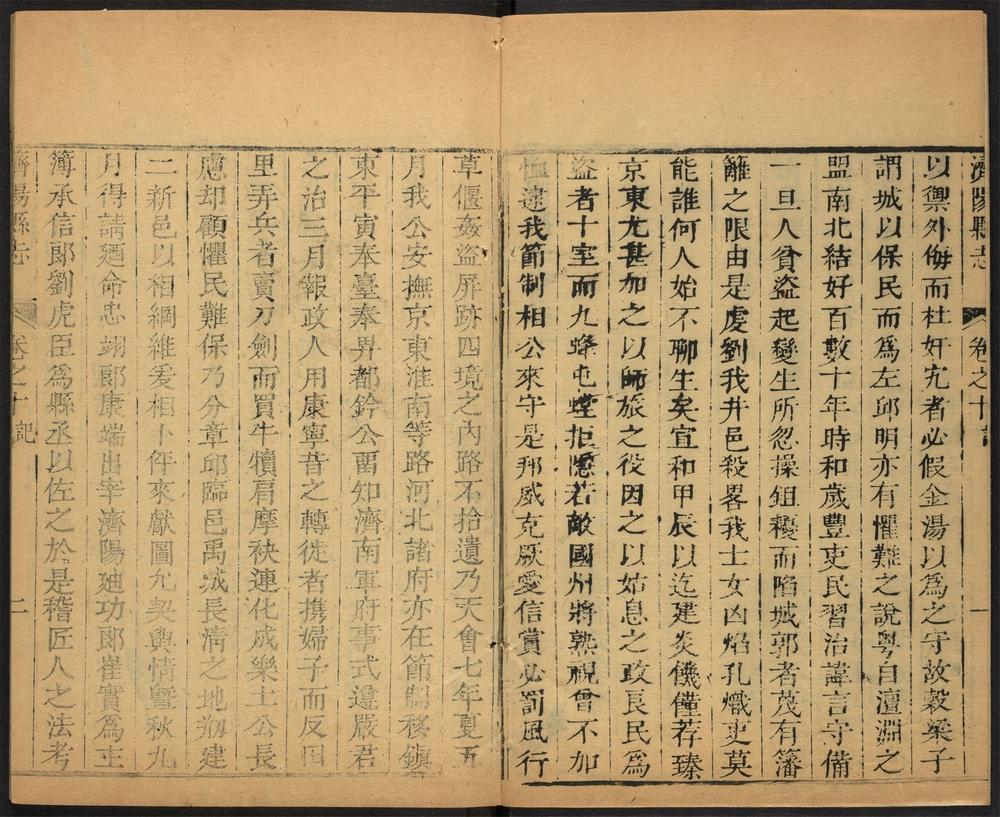 濟陽縣志 卷之十 記 一
以禦外侮而杜奸宄者必假金湯以爲之守故穀梁子
謂城以保民而爲左邱明亦有懼難之說粤自澶淵之
盟南北結好百數十年時和歲豐吏民習治諱言守備
一旦人貧盜起變生所忽操鉏耰而陷城郭者茂有籓
籬之限由是虔劉我井邑殺畧我士女凶焰孔熾吏莫
能誰何人始不聊生矣宣和甲辰以迄建炎饑僅荐臻
京東尤甚加之以師旅之役因之以姑息之政良民爲
盜者十室而九蜂屯螳拒隱若敵國州將熟視曾不加
恤逮我節制相公來守是邦威克厥愛信賞必罰風行
草偃姦盜屏跡四境之內路不拾遺乃天會七年夏五
月我公安撫京東淮南等路河北諸府亦在節制移鎮
東平寅奉臺奉畀都鈐公畱知濟南軍府事式遵嚴君
之治三月報政人用康寧昔之轉徙者携婦子而反田
里弄兵者賣刀劍而買牛犢肩摩袂連化成樂土公長
慮却顧懼民難保乃分章邱臨邑禹城長淸之地剏建
二新邑以相綱維爰相卜伻來獻圖允契輿情曁秋九
月得請廼命忠翊郎康端出宰濟陽廸功郎崔實爲主
簿承信郎劉虎臣爲縣丞以佐之於是稽匠人之法考
濟陽縣志 卷之十 記 二